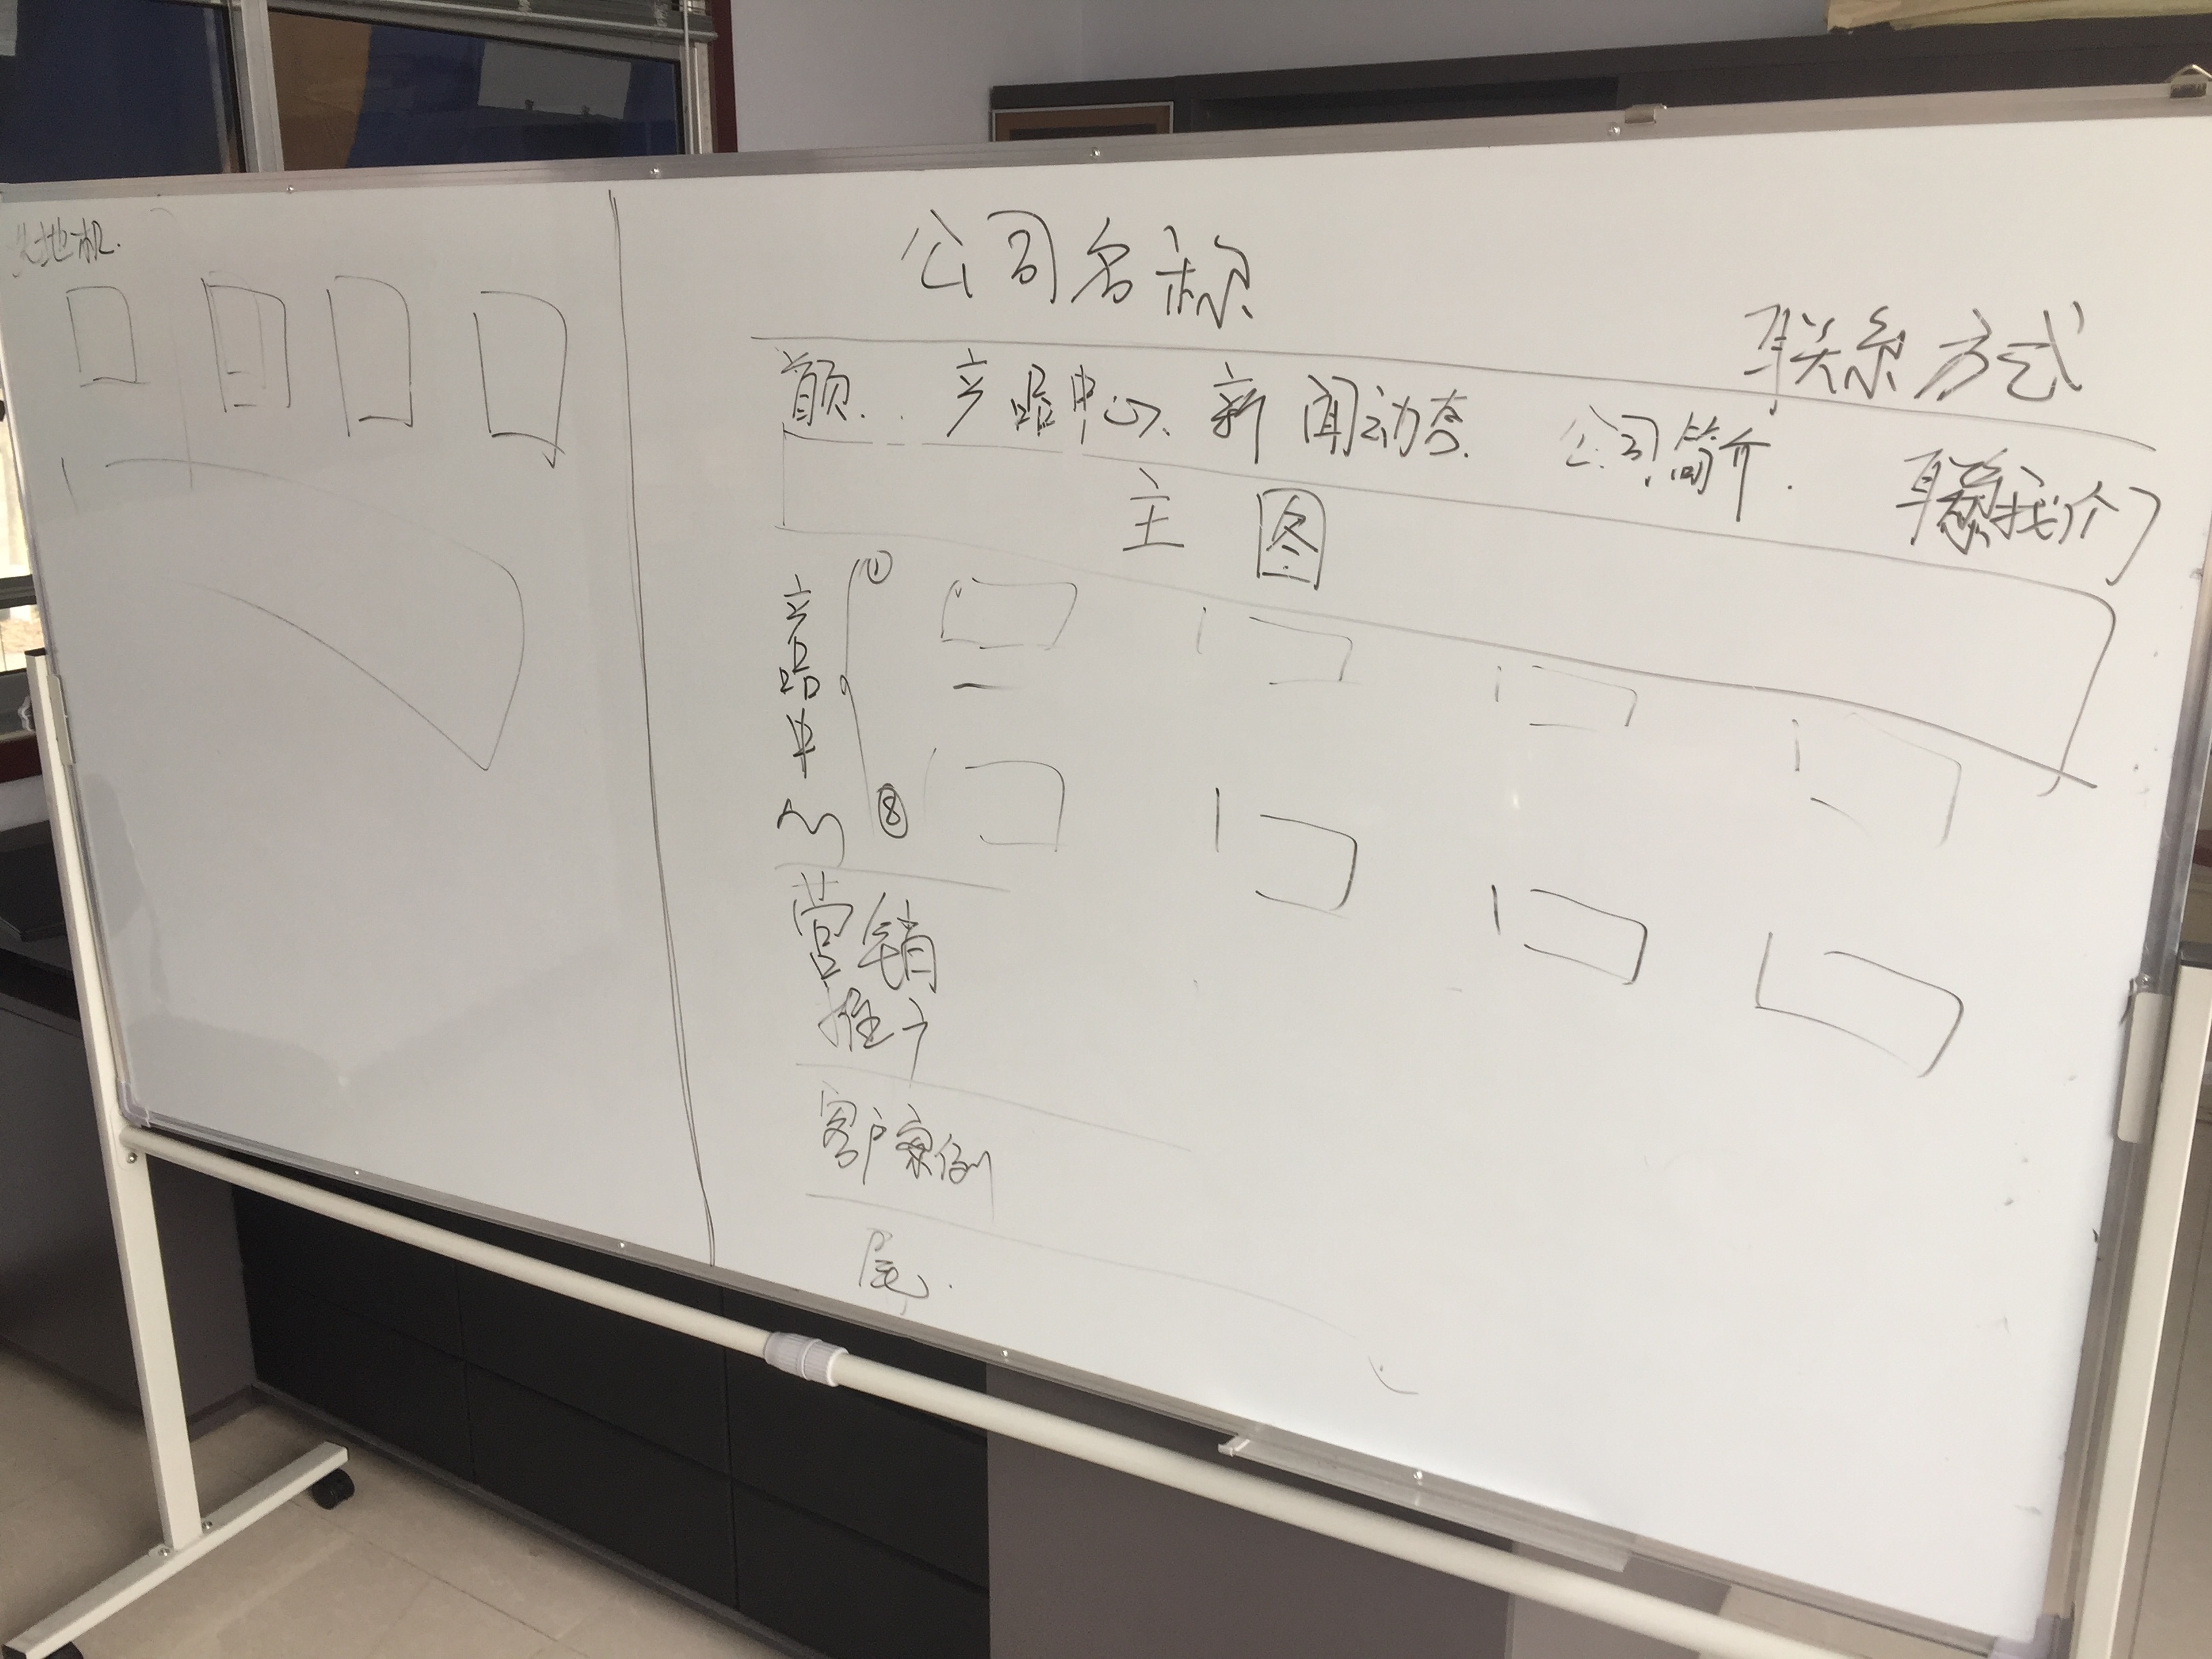 洗地机.
公司名称
联系方式
首页.. 产品中心、新闻动态. 公司简介. 联系我们
主图
①
产品中心
⑧
营销
推广
客户案例
尾.